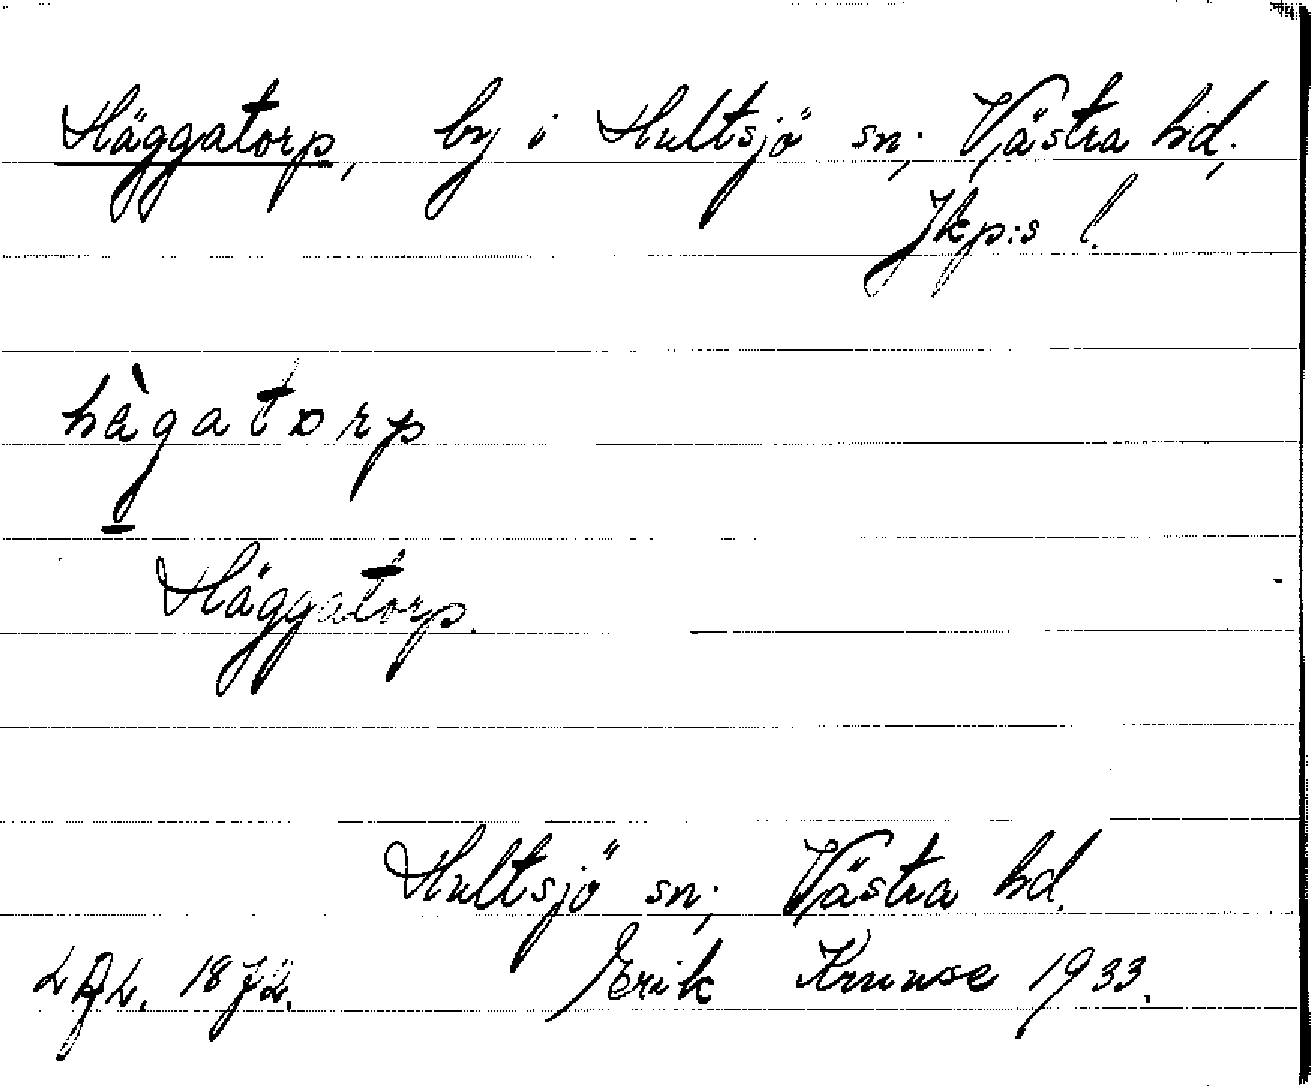 Häggatorp, by i Hultsjö sn; Västra hd;
Jkp:s l.
hàgatorp
Häggatorp.
Hultsjö sn; Västra hd.
1872. Erik Kruuse 1933.